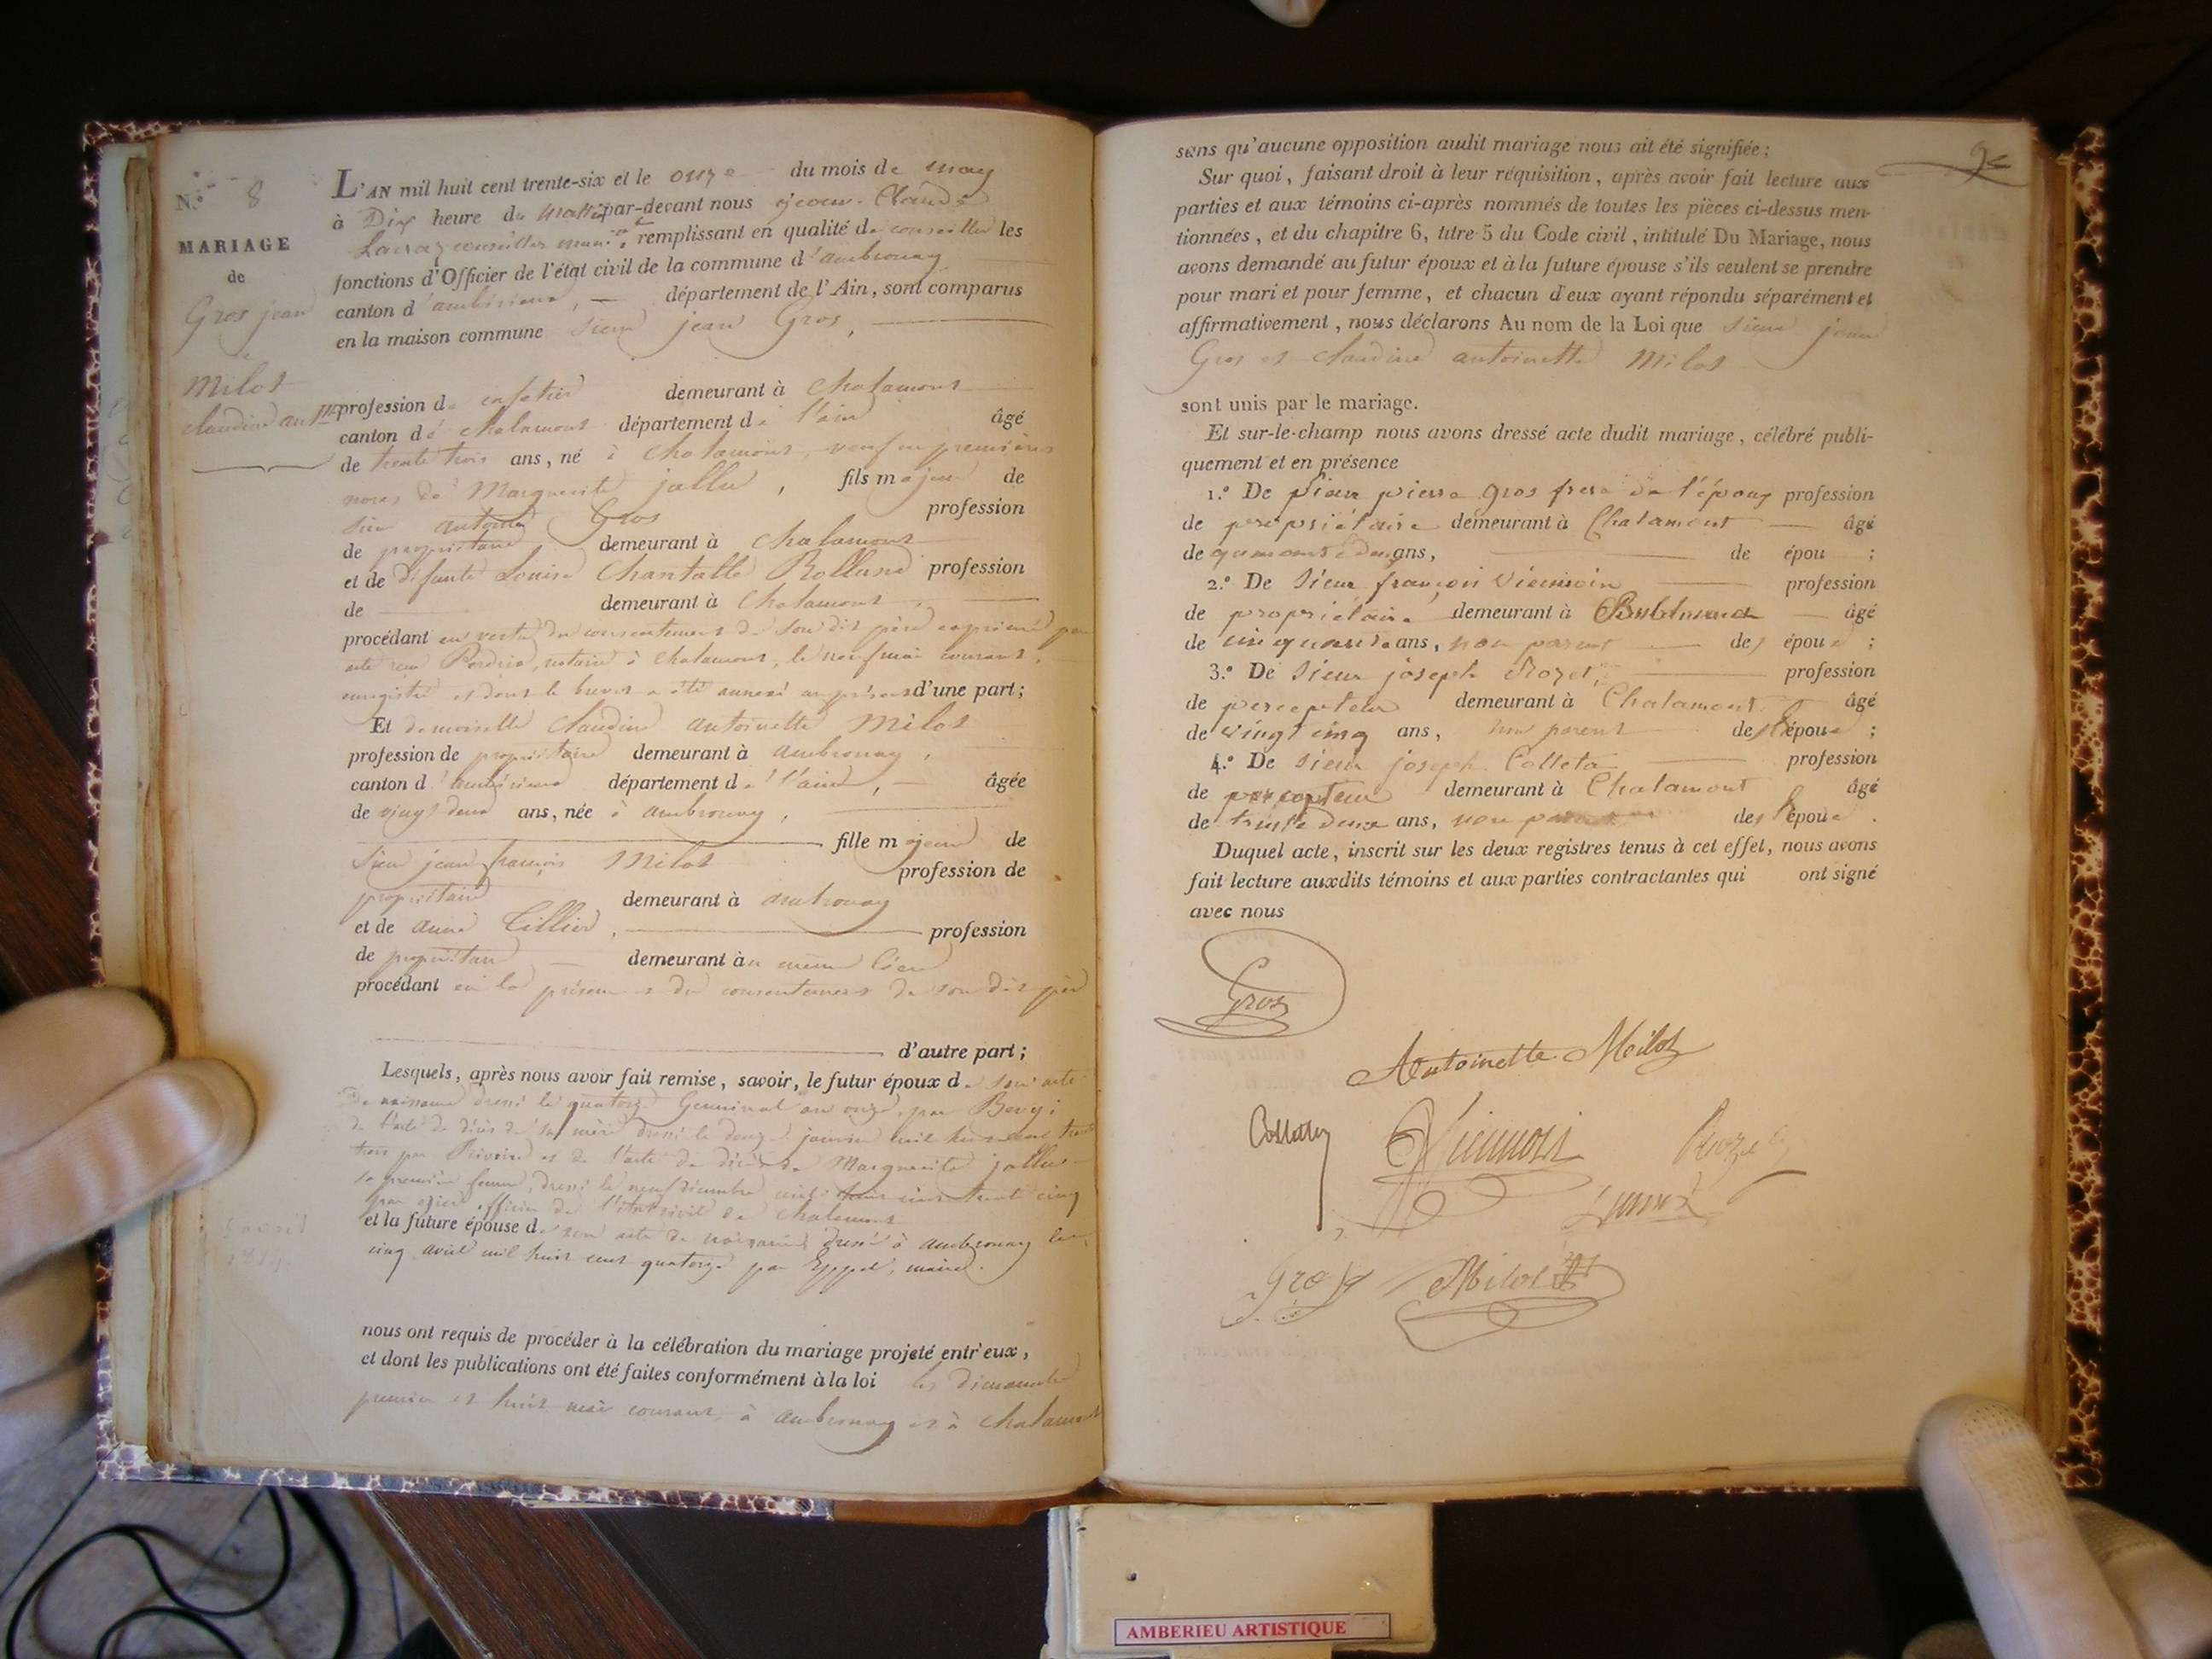 N.° 8
MARIAGE
de
Gros jean
Milot
claudine ant.tte
L'AN mil huit cent trente-six et le onze du mois de may
à Dix heure du matin par-devant nous Claude
conseiller remplissant en qualité de conseiller les
fonctions d'Officier de l'état civil de la commune d'ambronay
canton d'ambérieux, département de l'Ain, sont comparus
en la maison commune Sieur jean Gros,
profession de cafetier demeurant à Chalamont
canton dé Chalamont département de l'ain âgé
de trente trois ans, né à Chalamont, veuf en premières
noces de Marguerite jallu, fils majeur de
Sieur antoine Gros profession
de propriétaire demeurant à Chalamont
et de défunte Louise Chantalle Rolland profession
de demeurant à Chalamont,
procédant en vertu du consentement de son dit père exprimé par
acte reçu Perdrix, notaire à Chalamont, le neuf mai courant,
enregistré et dont le brevet a été annexé au présent d'une part;
Et demoiselle Claudine antoinette Milot
profession de propriétaire demeurant à ambronay,
canton d'ambérieux département de l'ain, âgée
de vingt deux ans, née à ambronay,
fille majeure de
Sieur jean françois Milot profession de
propriétaire demeurant à ambronay
et de anne Tillier, profession
de propriétaire demeurant àu même lieu
procédant en la présence et du consentement de son dit père
d'autre part;
Lesquels, après nous avoir fait remise, savoir, le futur époux de son acte
de naissance dressé le quatorze Germinal an onze, par
de l'acte de décès de sa mère dressé le janvier mil huit cent trente
trois par et de l'acte de décès de Marguerite jallu
sa première femme, dressé le neuf décembre mil huit cent trente cinq
par officier de l'état civil de Chalamont
et la future épouse de son acte de naissance dressé à ambronay le
cinq avril mil huit cent quatorze par maire.
nous ont requis de procéder à la célébration du mariage projeté entr'eux,
et dont les publications ont été faites conformément à la loi les dimanche
premier et huit mai courant à ambronay et à Chalamont
sans qu'aucune opposition audit mariage nous ait été signifiée;
Sur quoi, faisant droit à leur réquisition, après avoir fait lecture aux
parties et aux témoins ci-après nommés de toutes les pièces ci-dessus men-
tionnées, et du chapitre 6, titre 5 du Code civil, intitulé Du Mariage, nous
avons demandé au futur époux et à la future épouse s'ils veulent se prendre
pour mari et pour femme, et chacun d'eux ayant répondu séparément et
affirmativement, nous déclarons Au nom de la Loi que Sieur jean
Gros et claudine antoinette Milot
sont unis par le mariage.
Et sur-le-champ nous avons dressé acte dudit mariage, célébré publi-
quement et en présence
1.° De Sieur pierre gros frere de l'époux profession
de propriétaire demeurant à Chalamont âgé
de ans, de épou ;
2.° De Sieur françois Viennois profession
de propriétaire demeurant à âgé
de cinquante ans, non parent des épou ;
3.° De Sieur joseph Rozet, profession
de percepteur demeurant à Chalamont âgé
de vingt cinq ans, non parent des épou ;
4.° De Sieur joseph Colleta profession
de percepteur demeurant à Chalamont âgé
de trente deux ans, non parent des épou .
Duquel acte, inscrit sur les deux registres tenus à cet effet, nous avons
fait lecture auxdits témoins et aux parties contractantes qui ont signé
avec nous
Gros
Antoinette Milot
Viennois
Rozet
Gros
Milot
AMBERIEU ARTISTIQUE